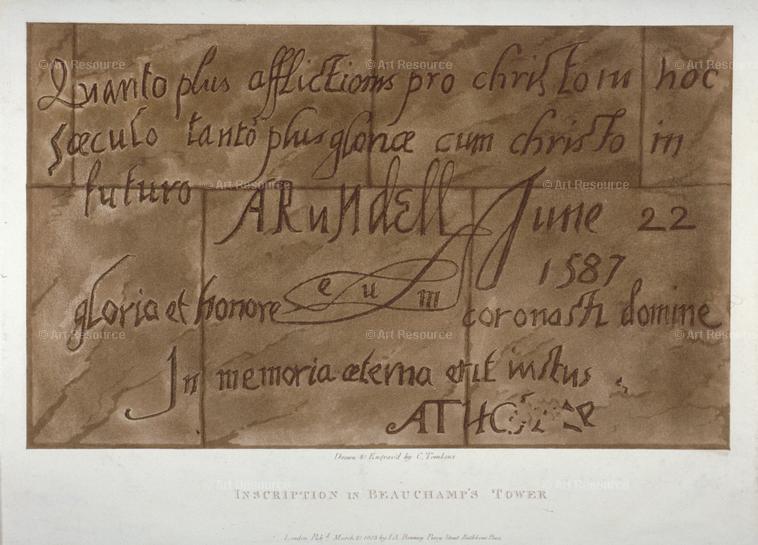 Quanto plus afflictionis pro christo in hoc
sæculo tanto plus gloriæ cum christo in
futuro ARUNDELL June 22
1587
gloria et honore eum coronasti domine
In memoria æterna erit iustus
Drawn & Engrav'd by C. Tomkins
INSCRIPTION IN BEAUCHAMP'S TOWER
London Pub.d March
© Art Resource
© Art Resource
© Art Resource
© Art Resource
© Art Resource
© Art Resource
© Art Resource
© Art Resource
© Art Resource
© Art Resource
© Art Resource
© Art Resource